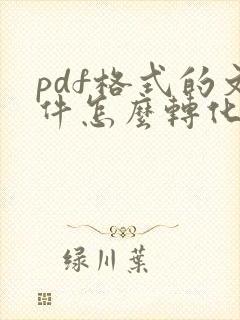 pdf格式的文
件怎麼轉化
绿川葉